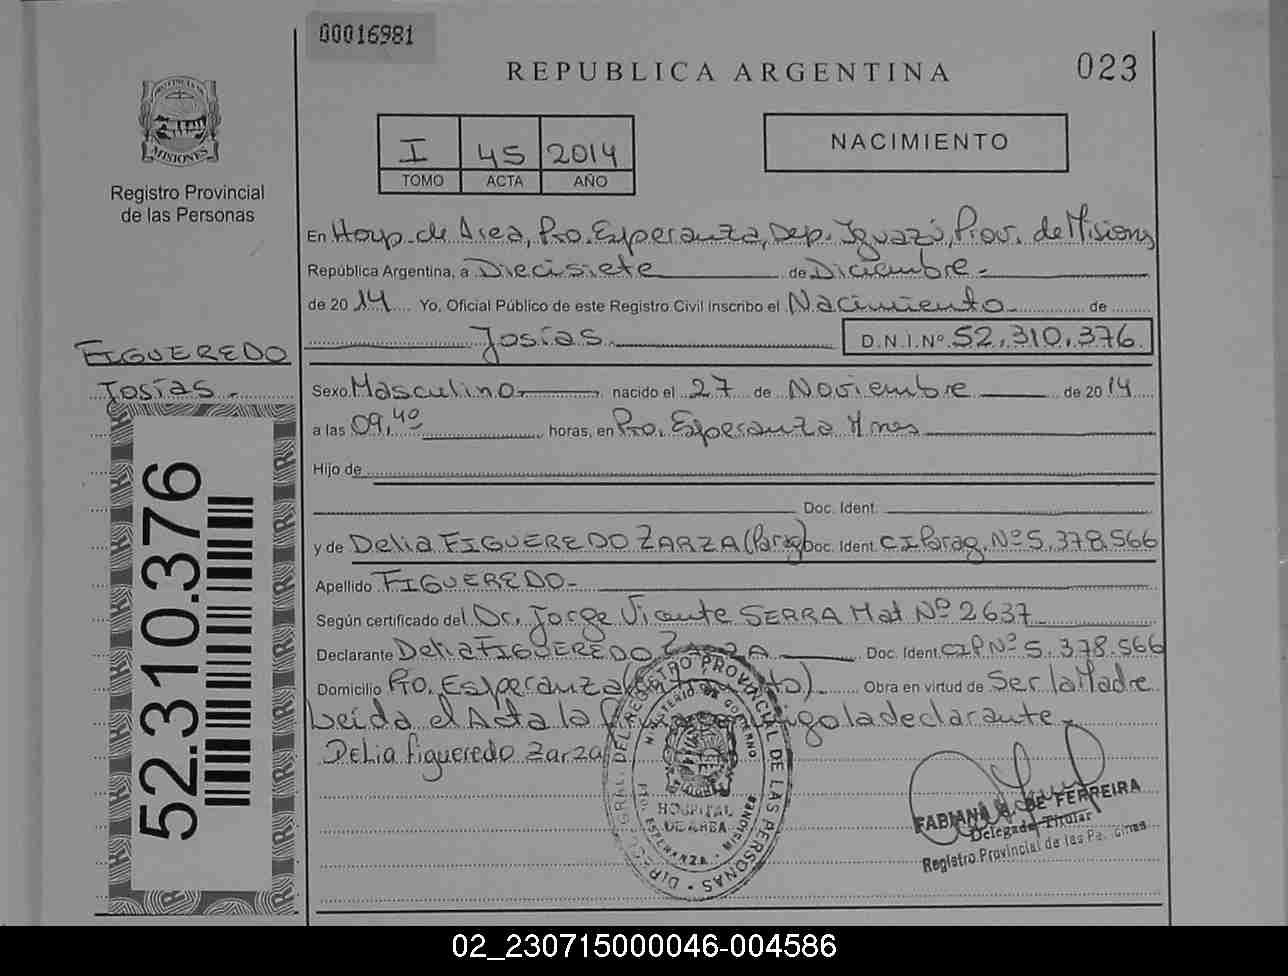 00016981
REPUBLICA ARGENTINA
023
PROVINCIA DE
MISIONES
Registro Provincial
de las Personas
I 45 2014
TOMO ACTA AÑO
NACIMIENTO
En Hosp. de Area, Pto. Esperanza, Dep. Iguazú, Prov. de Misiones
República Argentina, a Diecisiete de Diciembre.-
de 2014 Yo, Oficial Público de este Registro Civil inscribo el Nacimiento de
Josías.
D.N.I.Nº 52.310.376
FIGUEREDO
Josías.-
Sexo Masculino nacido el 27 de Noviembre de 2014
a las 09,40 horas, en Pto. Esperanza Mnes
Hijo de
Doc. Ident.
y de Delia FIGUEREDO ZARZA (Parag) Doc. Ident. CI Parag. Nº 5.378.566
Apellido FIGUEREDO-
Según certificado del Dr. Jorge Vicente SERRA Mat Nº 2637
Declarante Delia FIGUEREDO ZARZA Doc. Ident. CIP Nº 5.378.566
Domicilio Pto. Esperanza Obra en virtud de Ser la Madre
Leída el Acta la declarante.-
Delia figueredo Zarza
52.310.376
DIREC. GRAL. DEL REGISTRO PROVINCIAL DE LAS PERSONAS
MINISTERIO DE GOBIERNO
HOSPITAL
DE AREA
PTO. ESPERANZA - MISIONES
FABIANA DE FERREIRA
Delegada Titular
Registro Provincial de las Personas
02_230715000046-004586